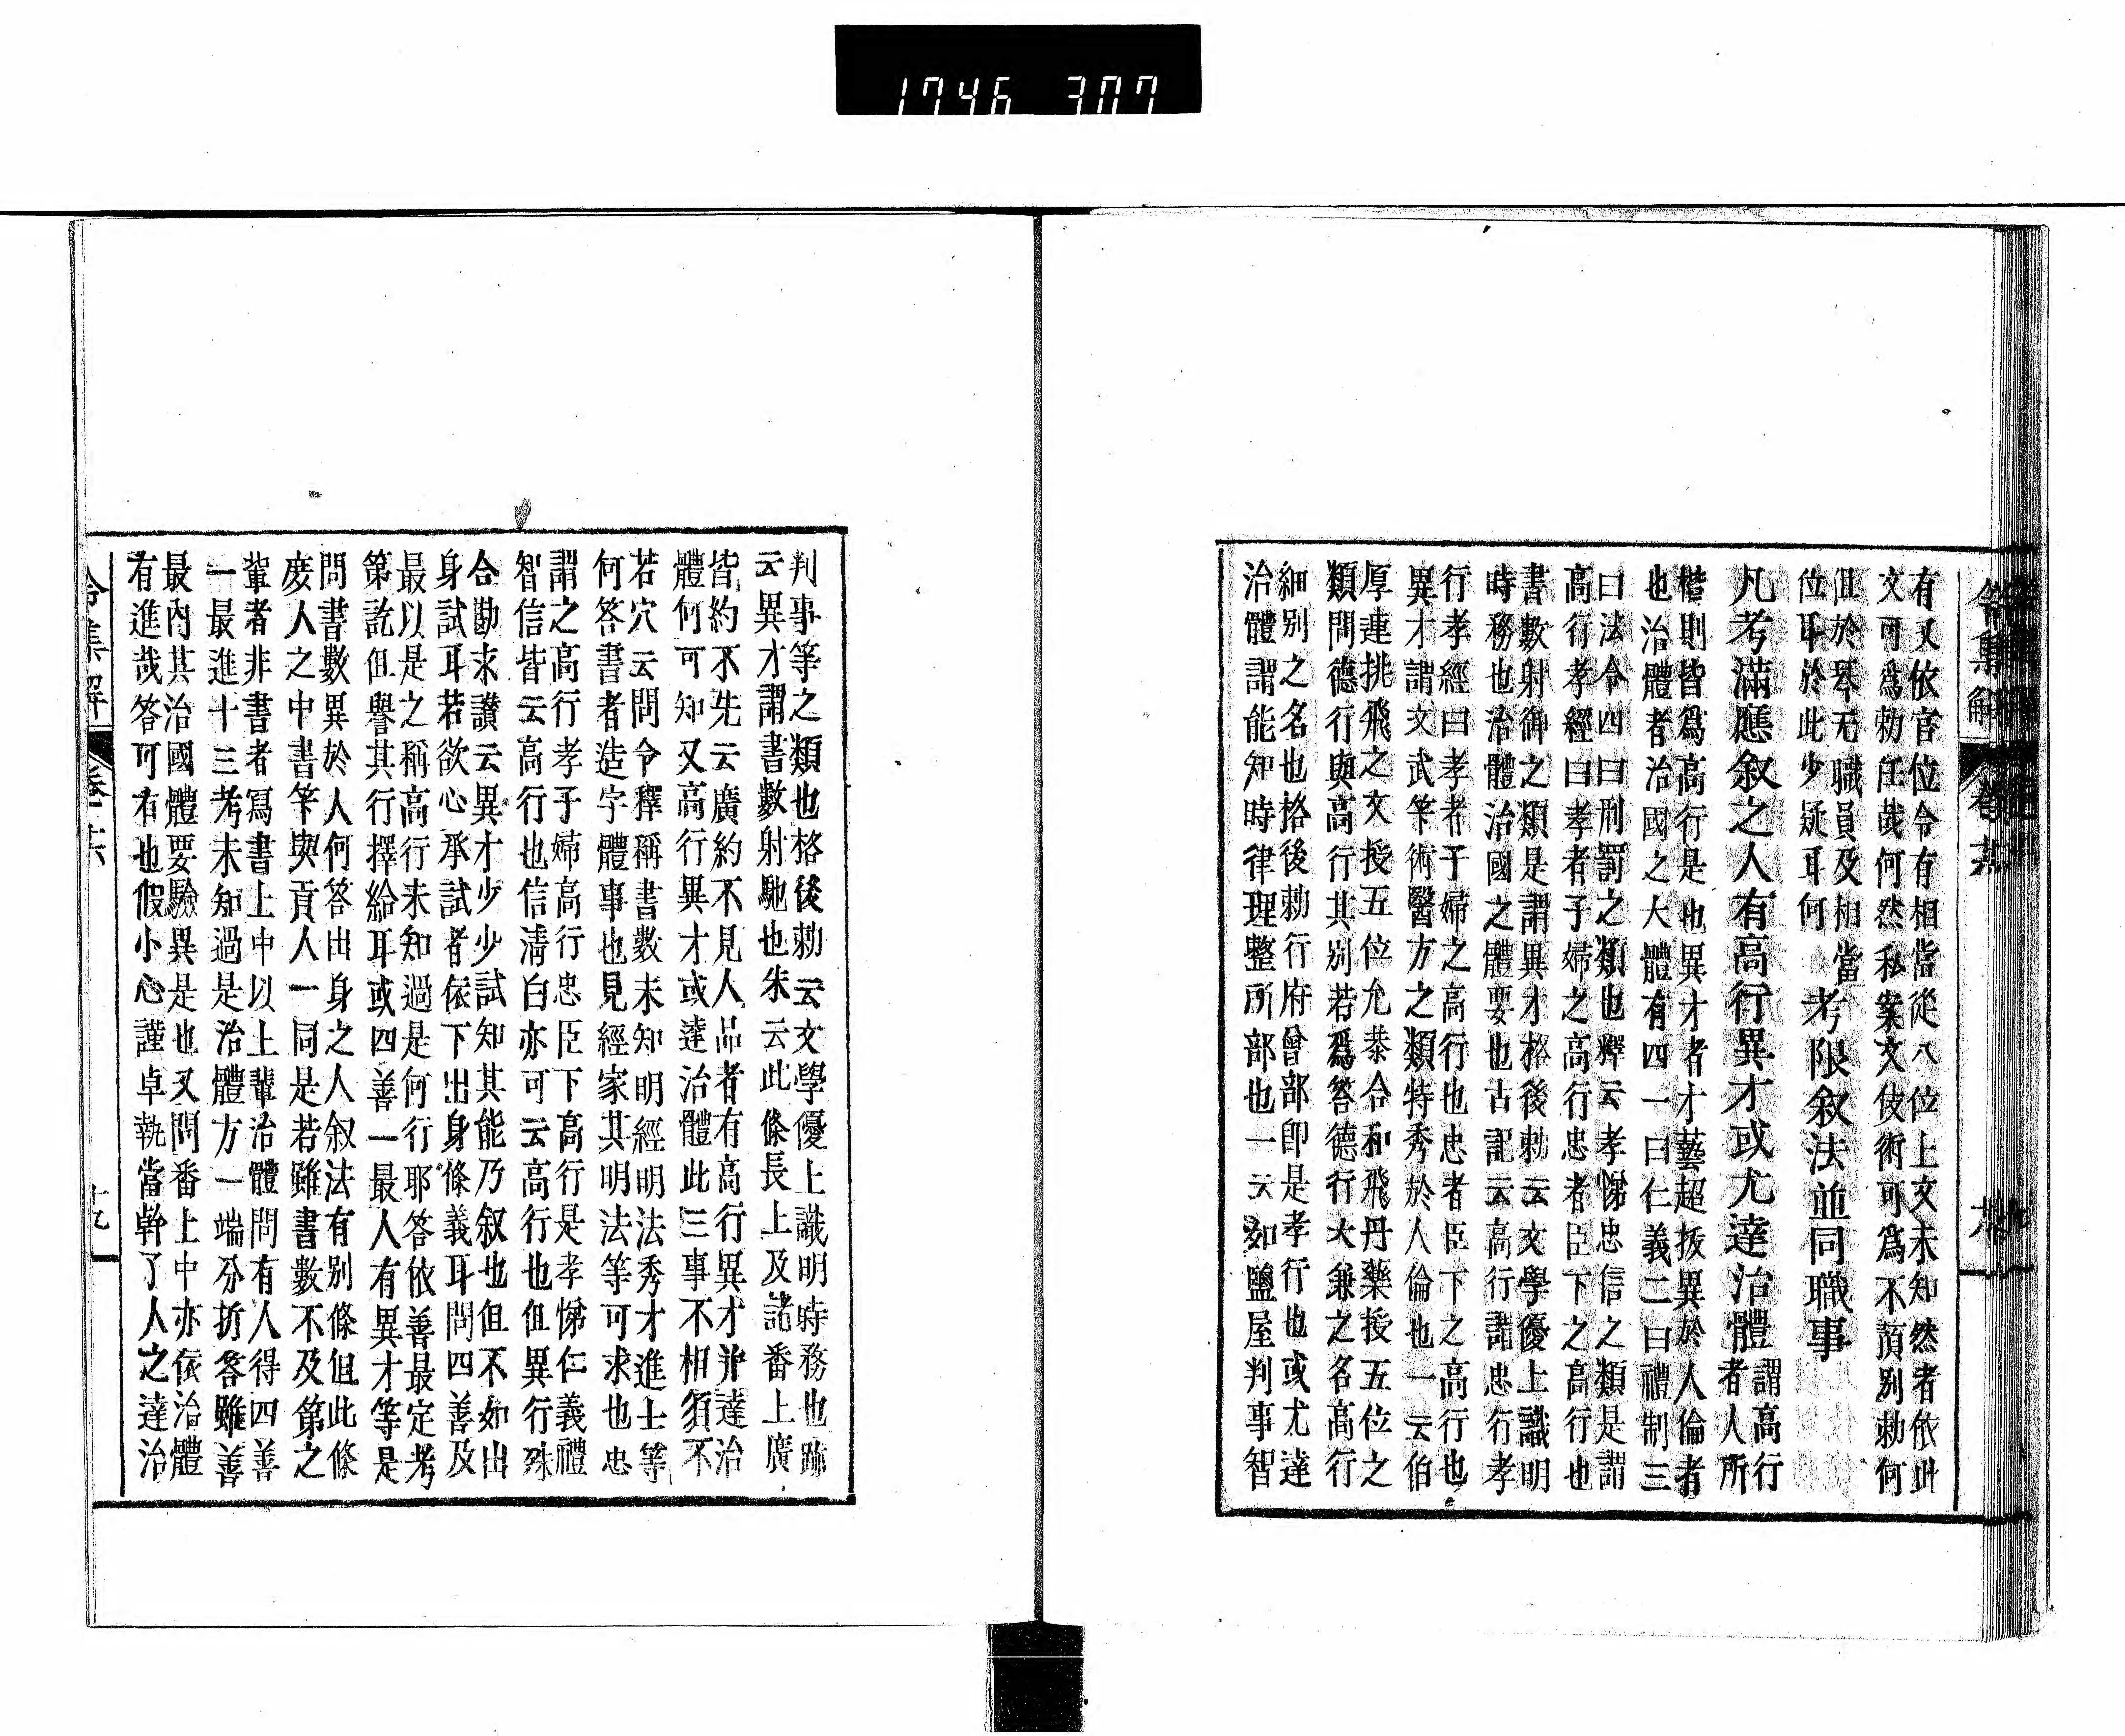 1746 307
令集解 卷
有又依官位令有相當從八位上文未知然者依此
文可爲勅任哉何然私案文伎術可爲不須別勅何
但於琴无職員及相當
位耳於此少疑耳何
考限敘法並同職事
凡考滿應敘之人有高行異才或尤達治體
謂高行
者人所
楷則皆爲高行是也異才者才藝超拔異於人倫者
也治體者治國之大體有四一曰仁義二曰禮制三
曰法令四曰刑罰之類也釋云孝悌忠信之類是謂
高行孝經曰孝者子婦之高行忠者臣下之高行也
書數射御之類是謂異才格後勅云文學優上識明
時務也治體治國之體要也古記云高行謂忠行孝
行孝經曰孝者子婦之高行也忠者臣下之高行也
異才謂文武笇術醫方之類特秀於人倫也一云伯
厚連挑飛之文授五位允恭合和飛丹藥授五位之
類問德行與高行其別若爲答德行大兼之名高行
細別之名也格後勅行府曾部即是孝行也或尤達
治體謂能知時律理整所部也一云如鹽屋判事智
判事等之類也格後勅云文學優上識明時務也跡
云異才謂書數射馳也朱云此條長上及諸番上廣
皆約不先云廣約不見人品者有高行異才并達治
體何可知又高行異才或達治體此三事不相須不
若穴云問令釋稱書數未知明經明法秀才進士等
何答書者造字體事也見經家其明法等可求也忠
謂之高行孝子婦高行忠臣下高行是孝悌仁義禮
智信皆云高行也信淸白亦可云高行也但異行殊
合勘求讃云異才少少試知其能乃叙也但不如出
身試耳若欲心承試者依下出身條義耳問四善及
最以是之稱高行未知過是何行耶答依善最定考
第訖但譽其行擇給耳或四善一最人有異才等是
問書數異於人何答出身之人叙法有別條但此條
庶人之中書笇與貢人一同是若雖書數不及第之
輩者非書者冩書上中以上輩治體問有人得四善
一最進十三考未知過是治體方一端分折答雖善
最內其治國體要驗異是也又問番上中亦依治體
有進哉答可有也假小心謹卓執當幹了人之達治
令集解 卷十六
十九